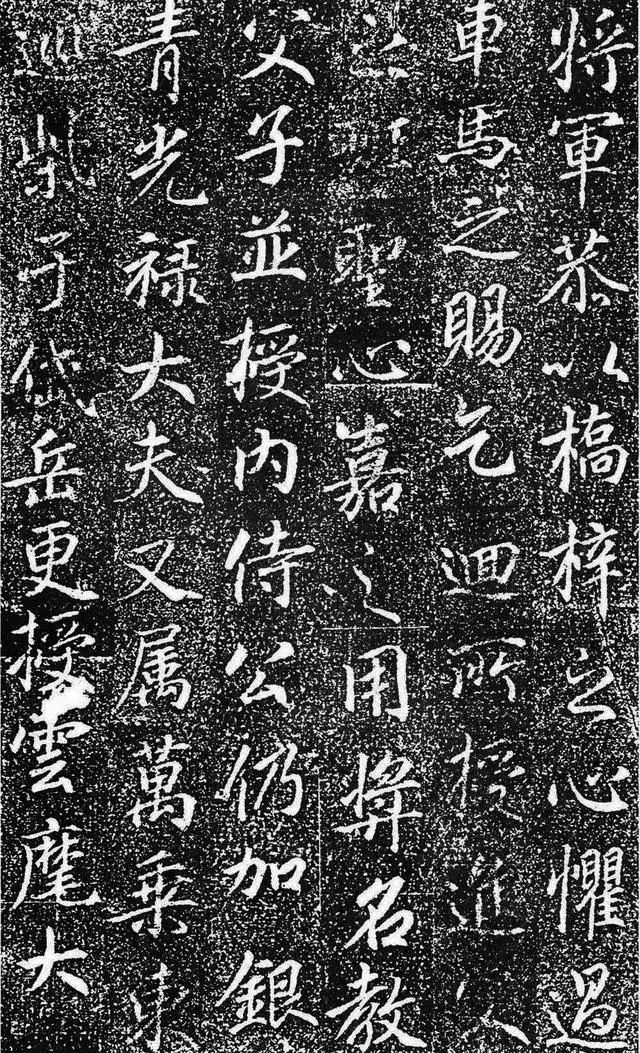 將軍恭以橋梓之心懼過
車馬之賜乞迴所授進父
之班聖心嘉之用奬名教
父子並授内侍公仍加銀
青光禄大夫又属萬乘東
巡柴于岱岳更授雲麾大